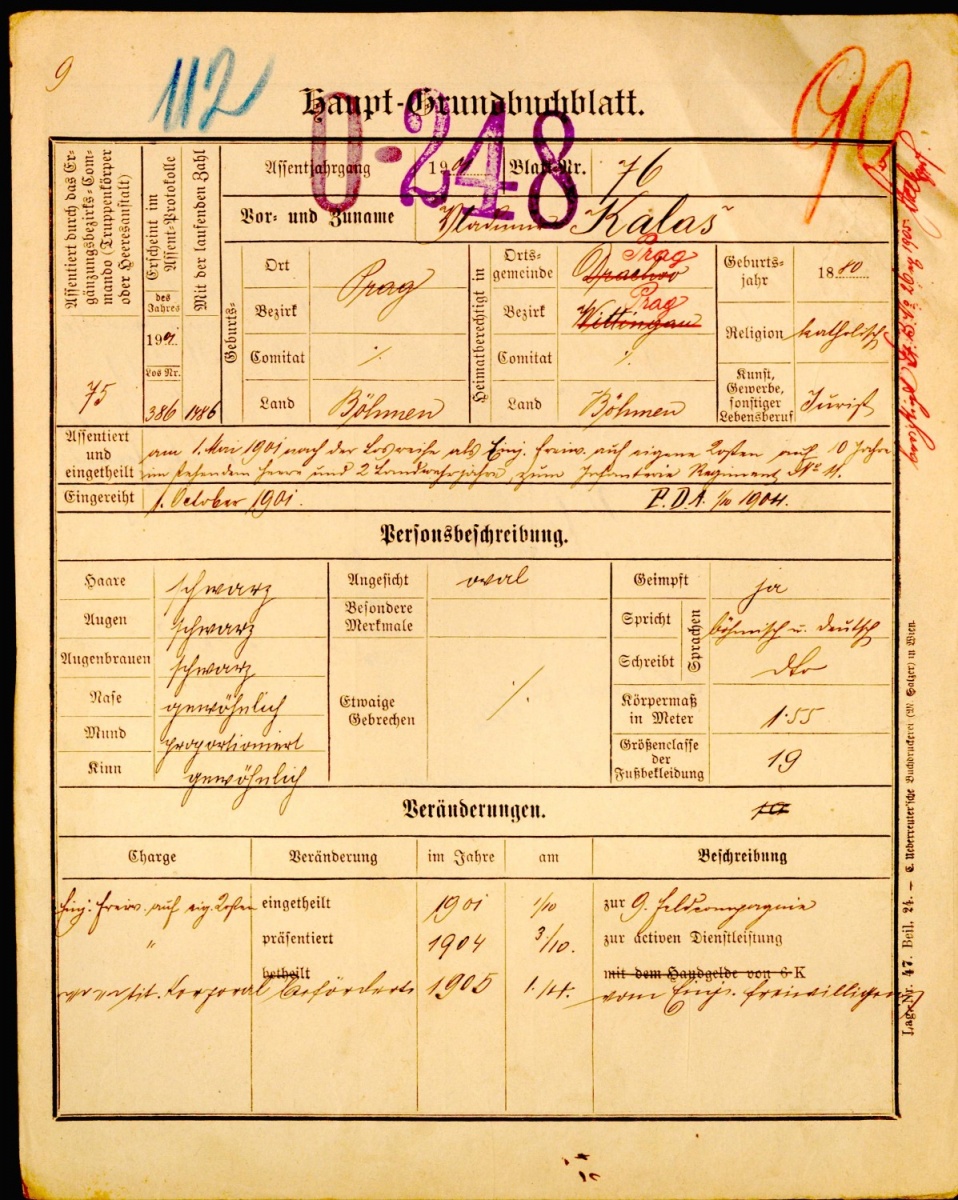 9
112
Haupt-Grundbuchblatt.
90
0-248
Assentiert durch das Er-
gänzungsbezirks-Com-
mando (Truppenkörper
oder Heeresanstalt)
75
Erscheint im
Assent-Protokolle
des
Jahres
1901
Los Nr.
386
Mit der laufenden Zahl
1886
Assentjahrgang 1901 Blatt-Nr. 76
Vor- und Zuname Kalaš
Geburts-
Ort Prag
Bezirk
Comitat ⁒
Land Böhmen
Heimatberechtigt in
Orts-
gemeinde Prag
Bezirk Wittingau Prag
Comitat ⁒
Land Böhmen
Geburts-
jahr 1880
Religion katholisch
Kunst,
Gewerbe,
sonstiger
Lebensberuf Jurist
Assentiert
und
eingetheilt
am 1. Mai 1901 nach der Losreihe als Einj. freiw. auf eigene Kosten auf 10 Jahre
im stehenden Heere und 2 Landwehrjahre, zum Infanterie Regiment No 11.
Eingereiht 1. October 1901. P.D.A. 1/10 1904.
Personsbeschreibung.
Haare schwarz
Augen schwarz
Augenbrauen schwarz
Nase gewöhnlich
Mund proportioniert
Kinn gewöhnlich
Angesicht oval
Besondere
Merkmale
Etwaige
Gebrechen ⁒
Geimpft ja
Spricht böhmisch u. deutsch
Schreibt dto
Sprachen
Körpermaß
in Meter 1·55
Größenclasse
der
Fußbekleidung 19
Veränderungen.
Charge Veränderung im Jahre am Beschreibung
Einj. freiw. auf eig. Kosten eingetheilt 1901 1/10 zur 9. Feldcompagnie
" präsentiert 1904 3/10. zur activen Dienstleistung
betheilt mit dem Handgelde von 6 K
tit. Korporal befördert 1905 1./4. vom Einj. freiwilligen
Lager-Nr. 47. Beil. 24. — C. Ueberreuter'sche Buchdruckerei (M. Salzer) in Wien.